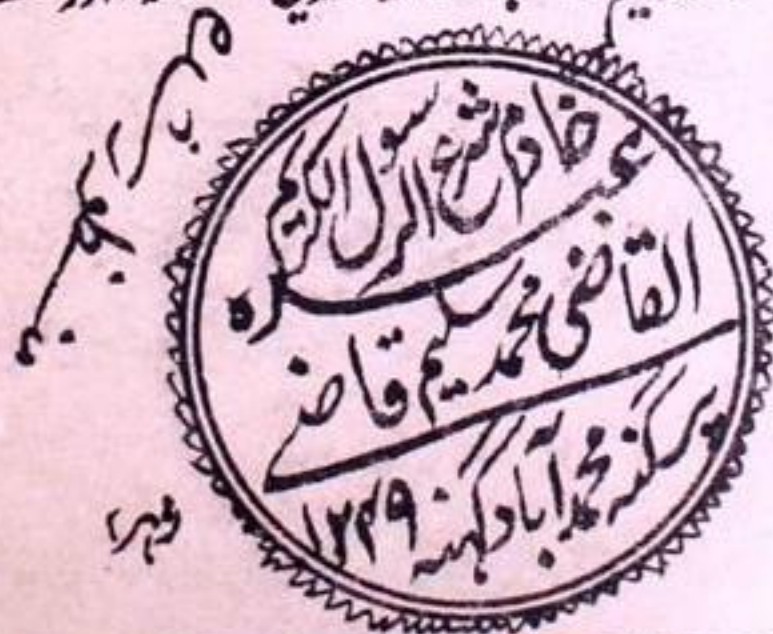 خادم شرع الرسول الکریم
عبده
القاضی محمد سلیم قاضے
پرگنہ محمدآباد گہنہ ۱۲۴۹
مہر